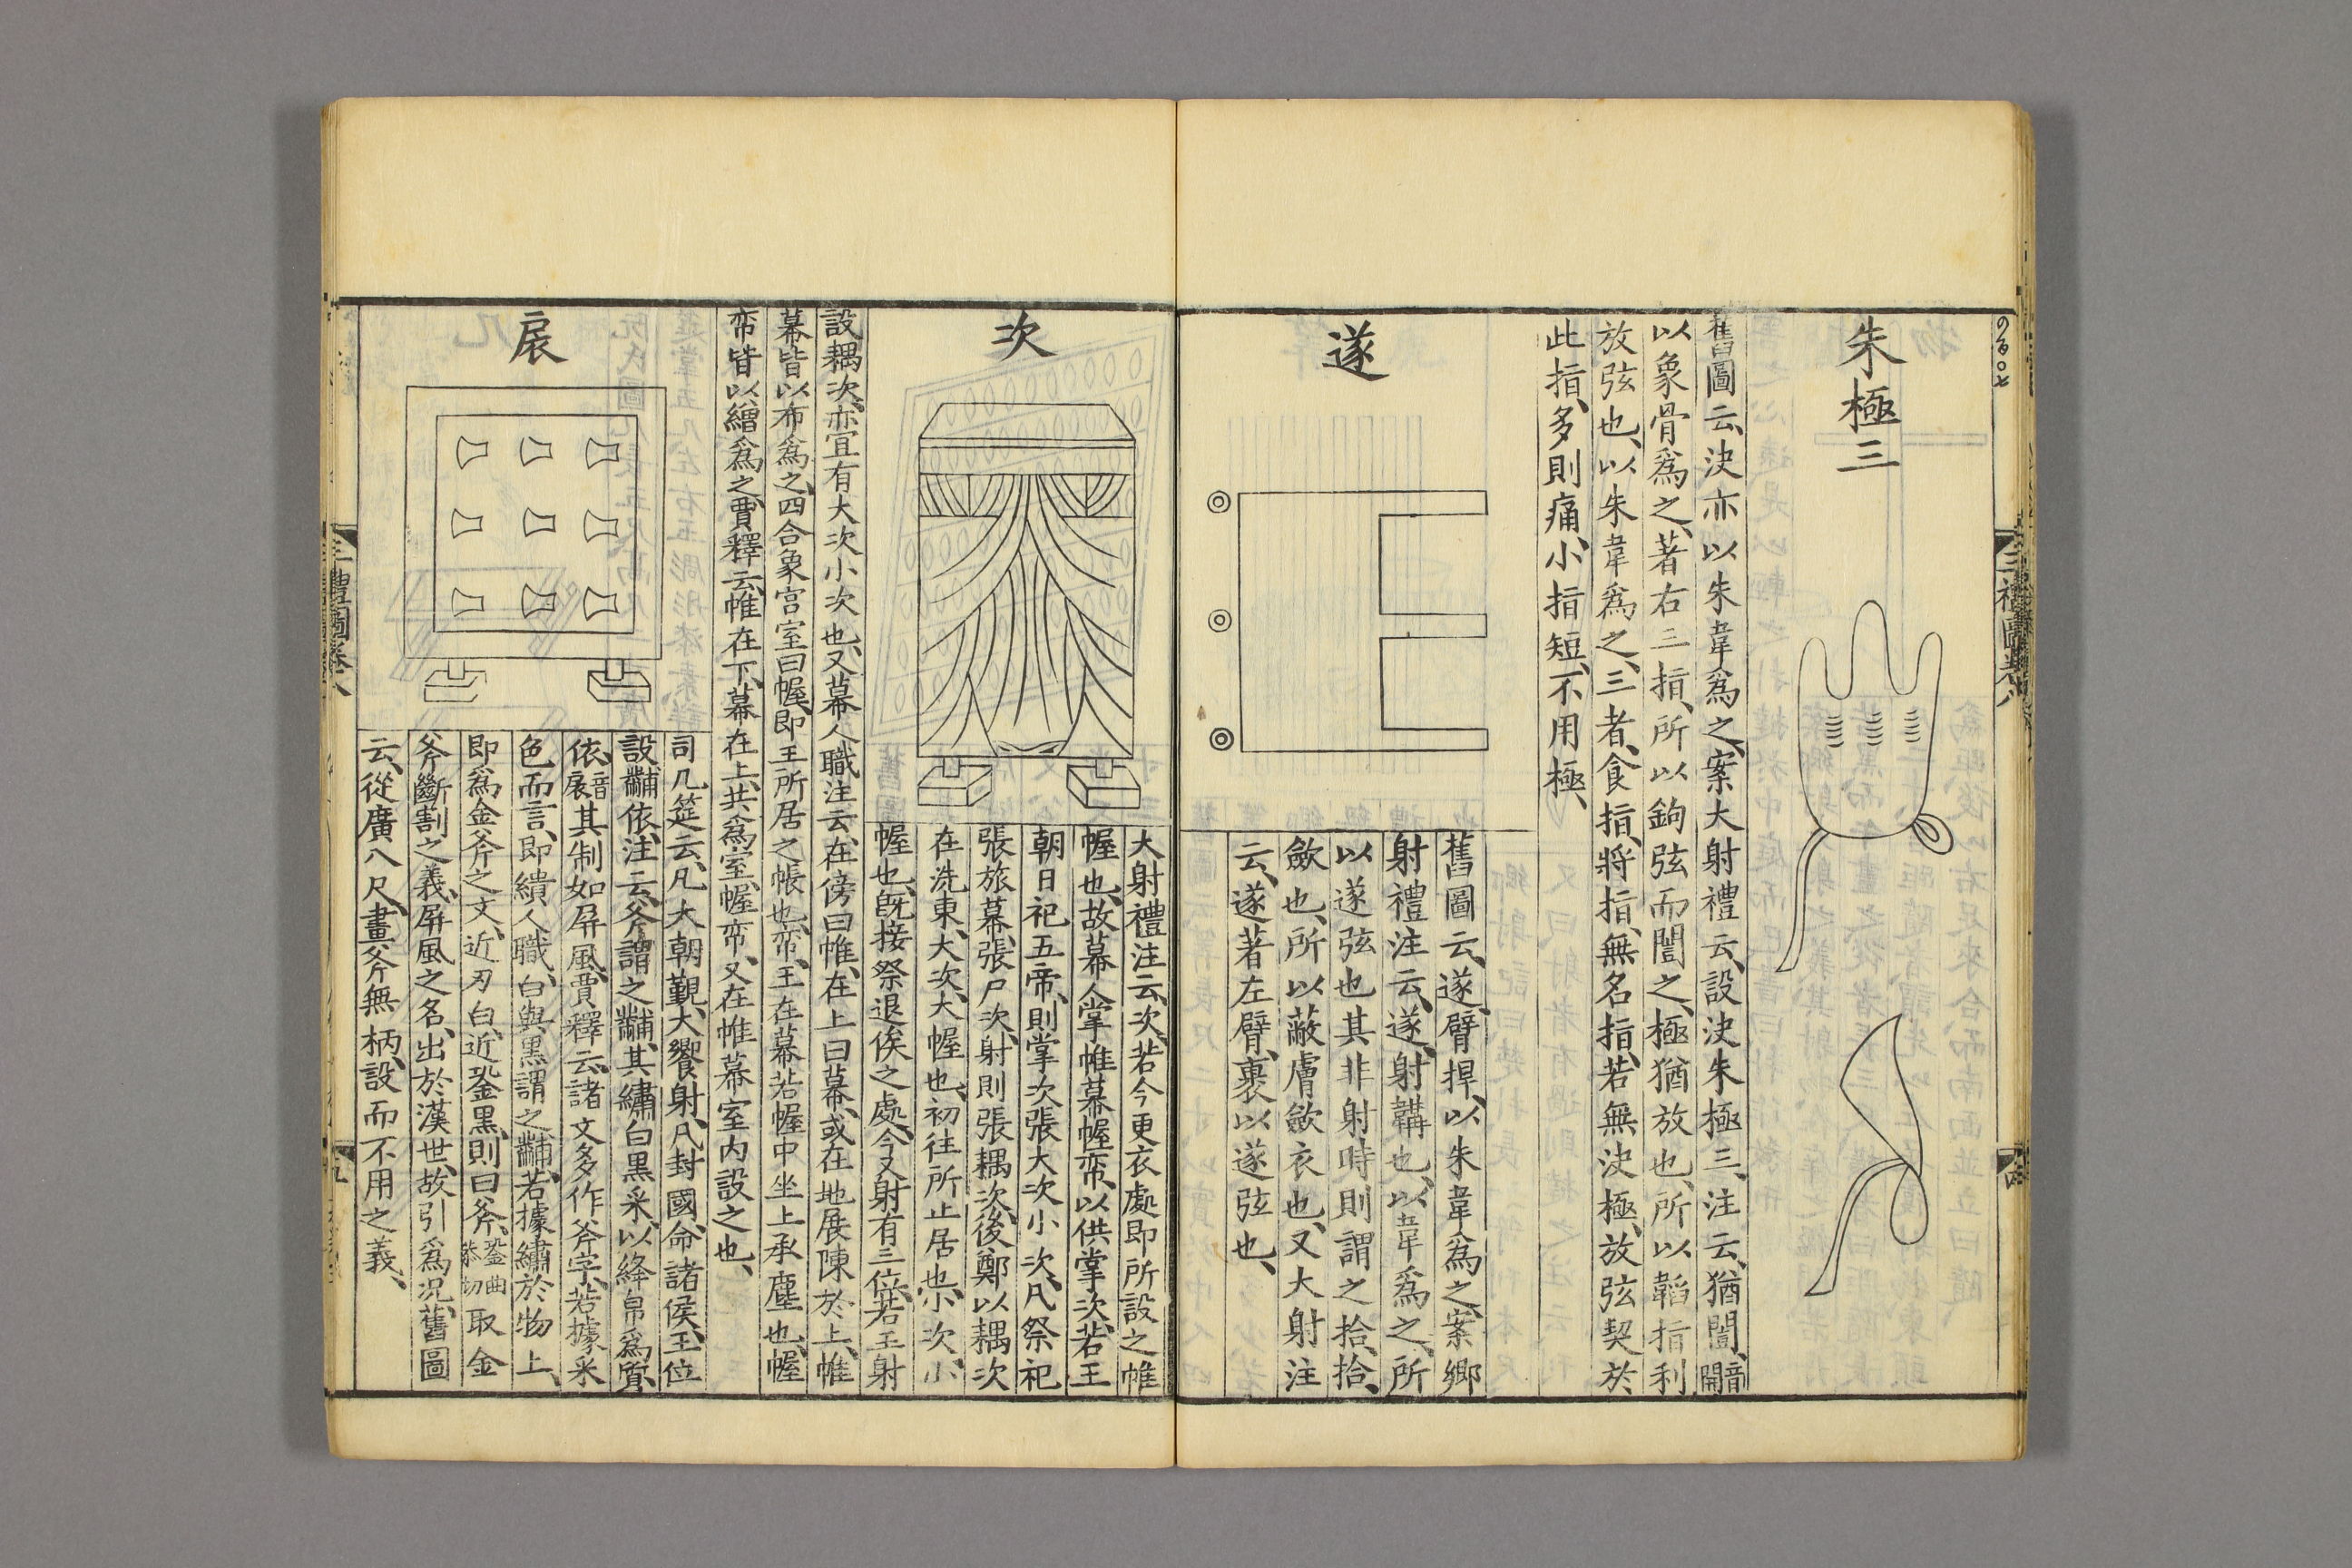 三禮圖卷八
四
朱極三
舊圖云、決亦以朱韋爲之、案大射禮云、設決朱極三、注云、猶闓、音開
以象骨爲之、著右三指、所以鉤弦而闓之、極猶放也、所以韜指利
放弦也、以朱韋爲之、三者、食指、將指、無名指、若無決極、放弦契於
此指、多則痛、小指短、不用極、
遂
舊圖云、遂、臂捍、以朱韋爲之、案鄉
射禮注云、遂、射韝也、以韋爲之、所
以遂弦也其非射時則謂之拾、拾、
斂也、所以蔽膚斂衣也、又大射注
云、遂著左臂、裹以遂弦也、
次
大射禮注云、次、若今更衣處即所設之帷
幄也、故幕人掌帷幕幄帟、以供掌次、若王
朝日祀五帝、則掌次張大次小次、凡祭祀
張旅幕、張尸次、射則張耦次、後鄭以耦次
在洗東、大次、大幄也、初往所止居也、小次、小
幄也、旣接祭退俟之處、今又射有三位、若王射
設耦次、亦宜有大次小次也、又幕人職注云、在傍曰帷、在上曰幕、或在地展陳於上、帷
幕皆以布爲之、四合象宮室曰幄、即王所居之帳也、帟、王在幕若幄中坐上承塵也、幄
帟皆以繒爲之、賈釋云、帷在下、幕在上、共爲室、幄帟、又在帷幕室内設之也、
扆
司几筵云、凡大朝覲、大饗射、凡封國、命諸侯、王位
設黼依、注云、斧謂之黼、其繡白黑采、以絳帛爲質、
依、音扆其制如屏風、賈釋云、諸文多作斧字、若據采
色而言、即繢人職、白與黑謂之黼、若據繡於物上、
即爲金斧之文、近刃白、近銎黑、則曰斧、銎曲恭切取金
斧斷割之義、屏風之名、出於漢世、故引爲况、舊圖
云、從廣八尺、畫斧無柄、設而不用之義、
三禮圖卷八
五